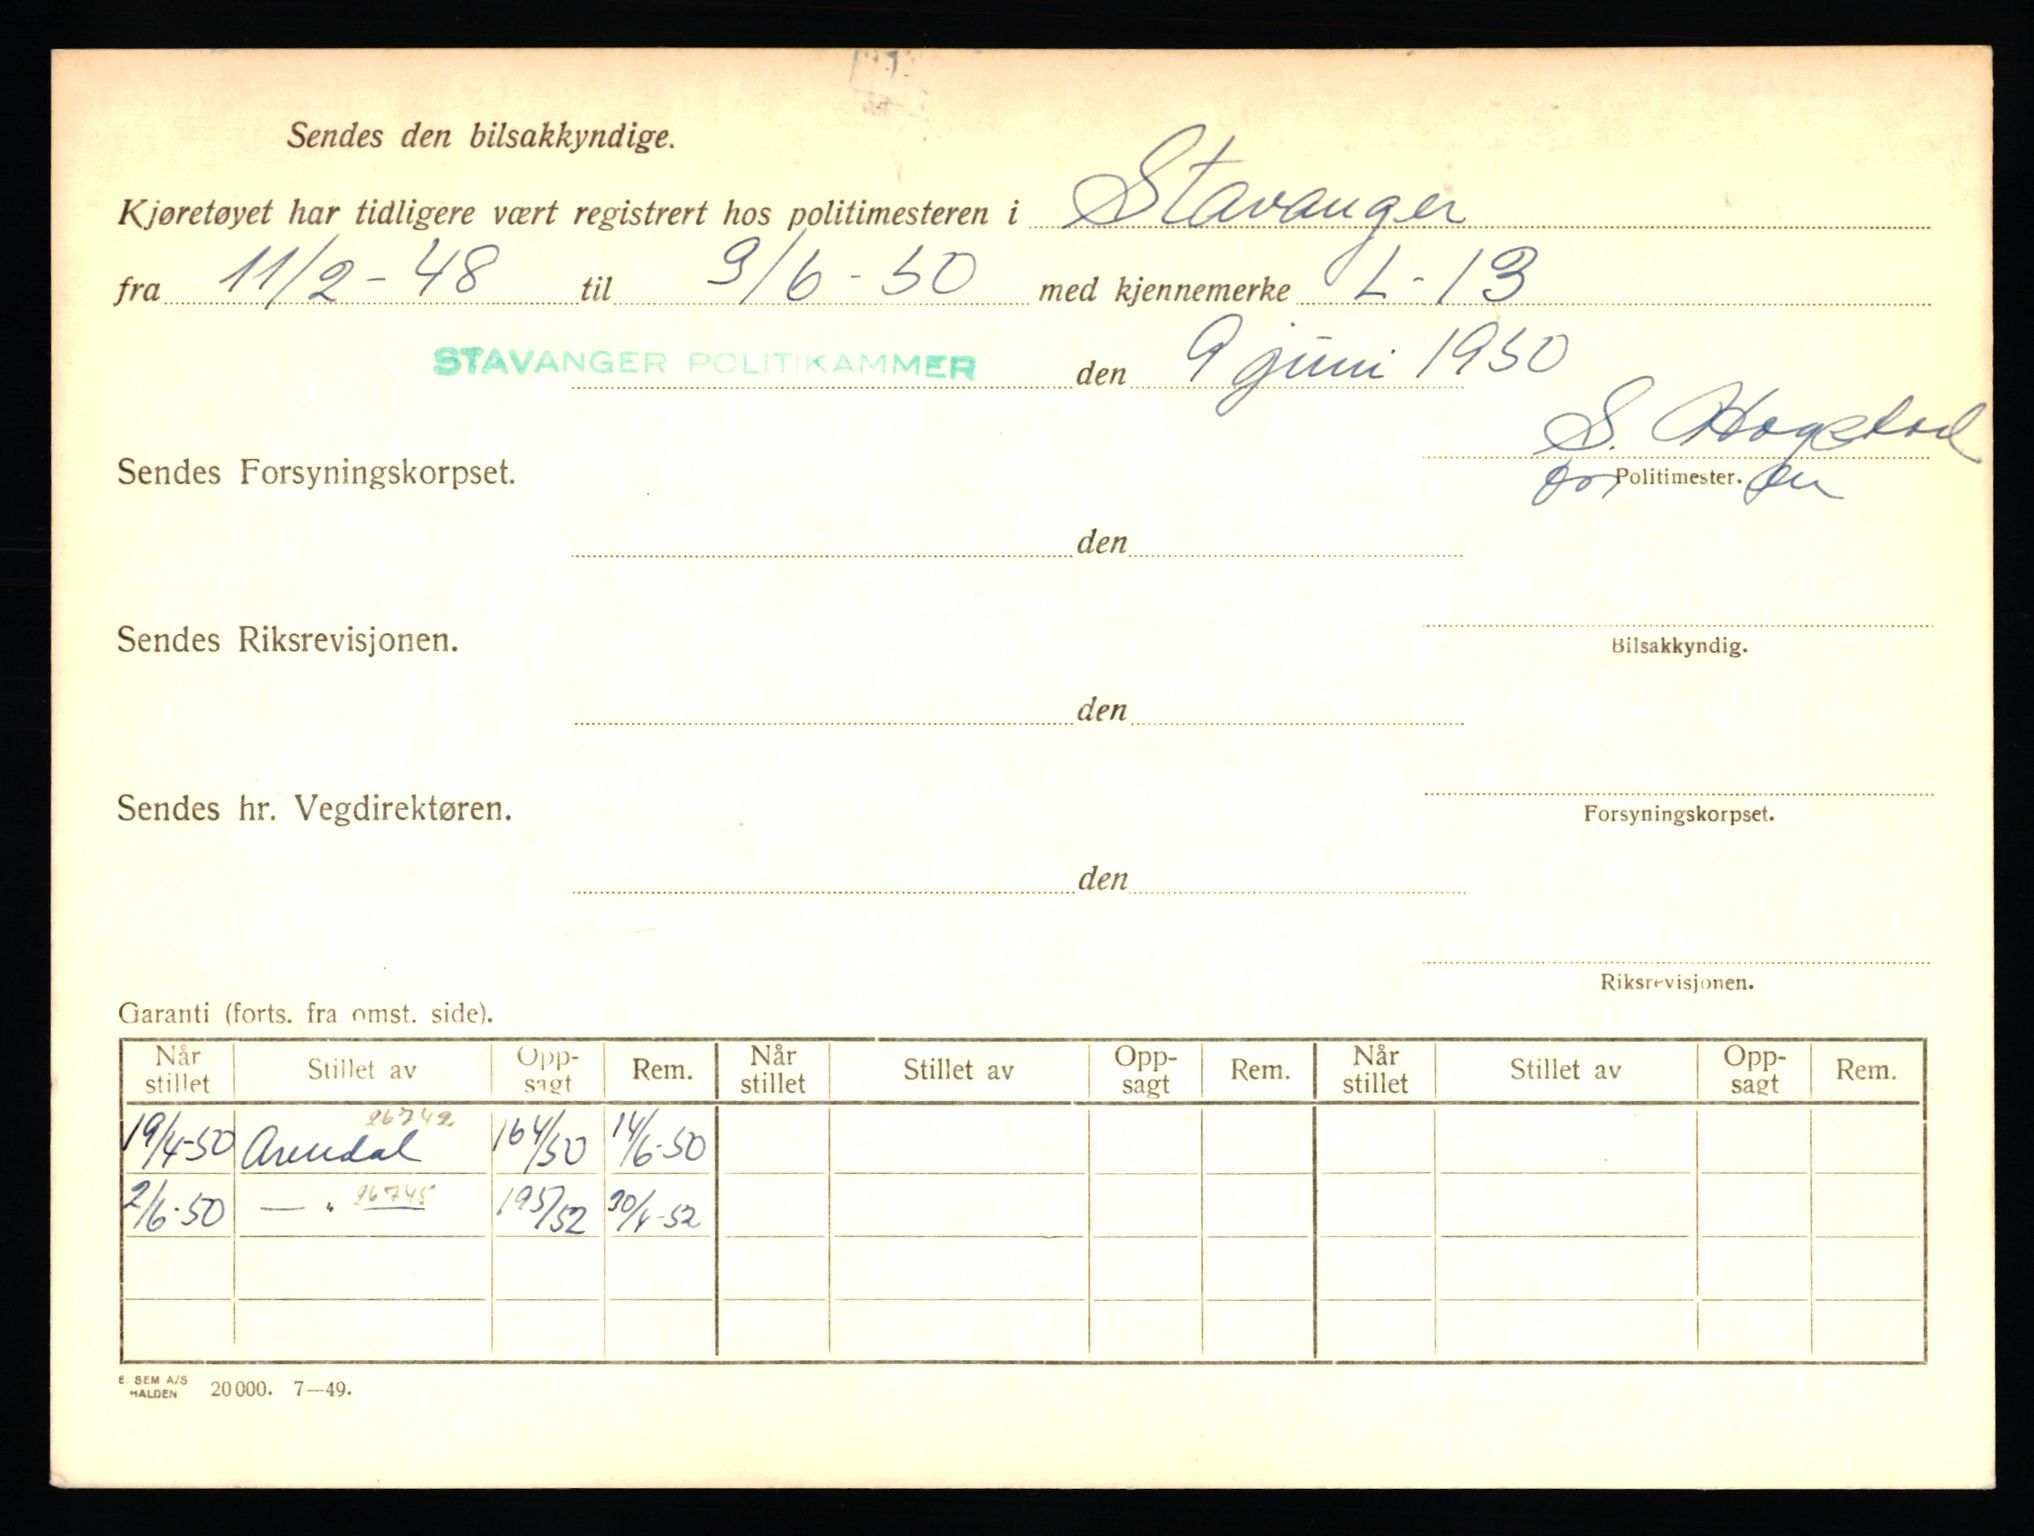 Sendes den bilsakkyndige.
Kjøretøyet har tidligere vært registrert hos politimesteren i Stavanger
fra 11/2-48 til 9/6-50 med kjennemerke L-13
STAVANGER POLITIKAMMER den 9 juni 1950
S. Hogstad
Sendes Forsyningskorpset.
Politimester.
den
Sendes Riksrevisjonen.
Bilsakkyndig.
den
Sendes hr. Vegdirektøren.
Forsyningskorpset.
den
Riksrevisjonen.
Garanti (forts. fra omst. side).
Når stillet Stillet av Opp-sagt Rem. Når stillet Stillet av Opp-sagt Rem. Når stillet Stillet av Opp-sagt Rem.
26742
19/4-50 Arendal 164/50 14/6-50
2/6-50 — " 26745 195/52 30/4-52
E. SEM A/S
HALDEN 20000. 7—49.